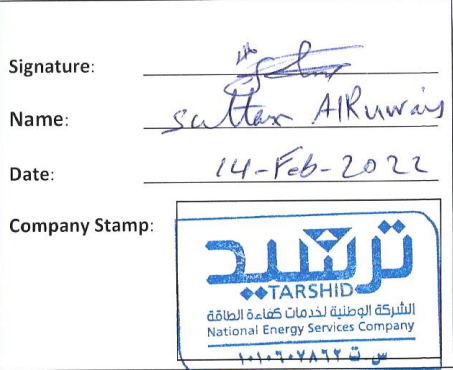 Signature:
Name: Sultan AlRuwais
Date: 14-Feb-2022
Company Stamp:
ترشيد
TARSHID
الشركة الوطنية لخدمات كفاءة الطاقة
National Energy Services Company
س ت ١٠١٠٦٠٧٨٦٢